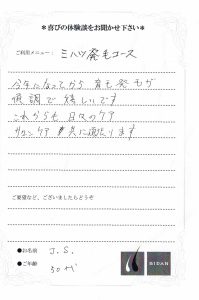 ＊喜びの体験談をお聞かせ下さい＊
ご利用メニュー： ミハツ発毛コース
今年になってから 育毛発毛が
順調で嬉しいです
これからも 日々のケア
サロンケア 共に頑張ります
ご要望など、ございましたらどうぞ
●お名前 J.S.
●ご年齢 30代
BIDAN